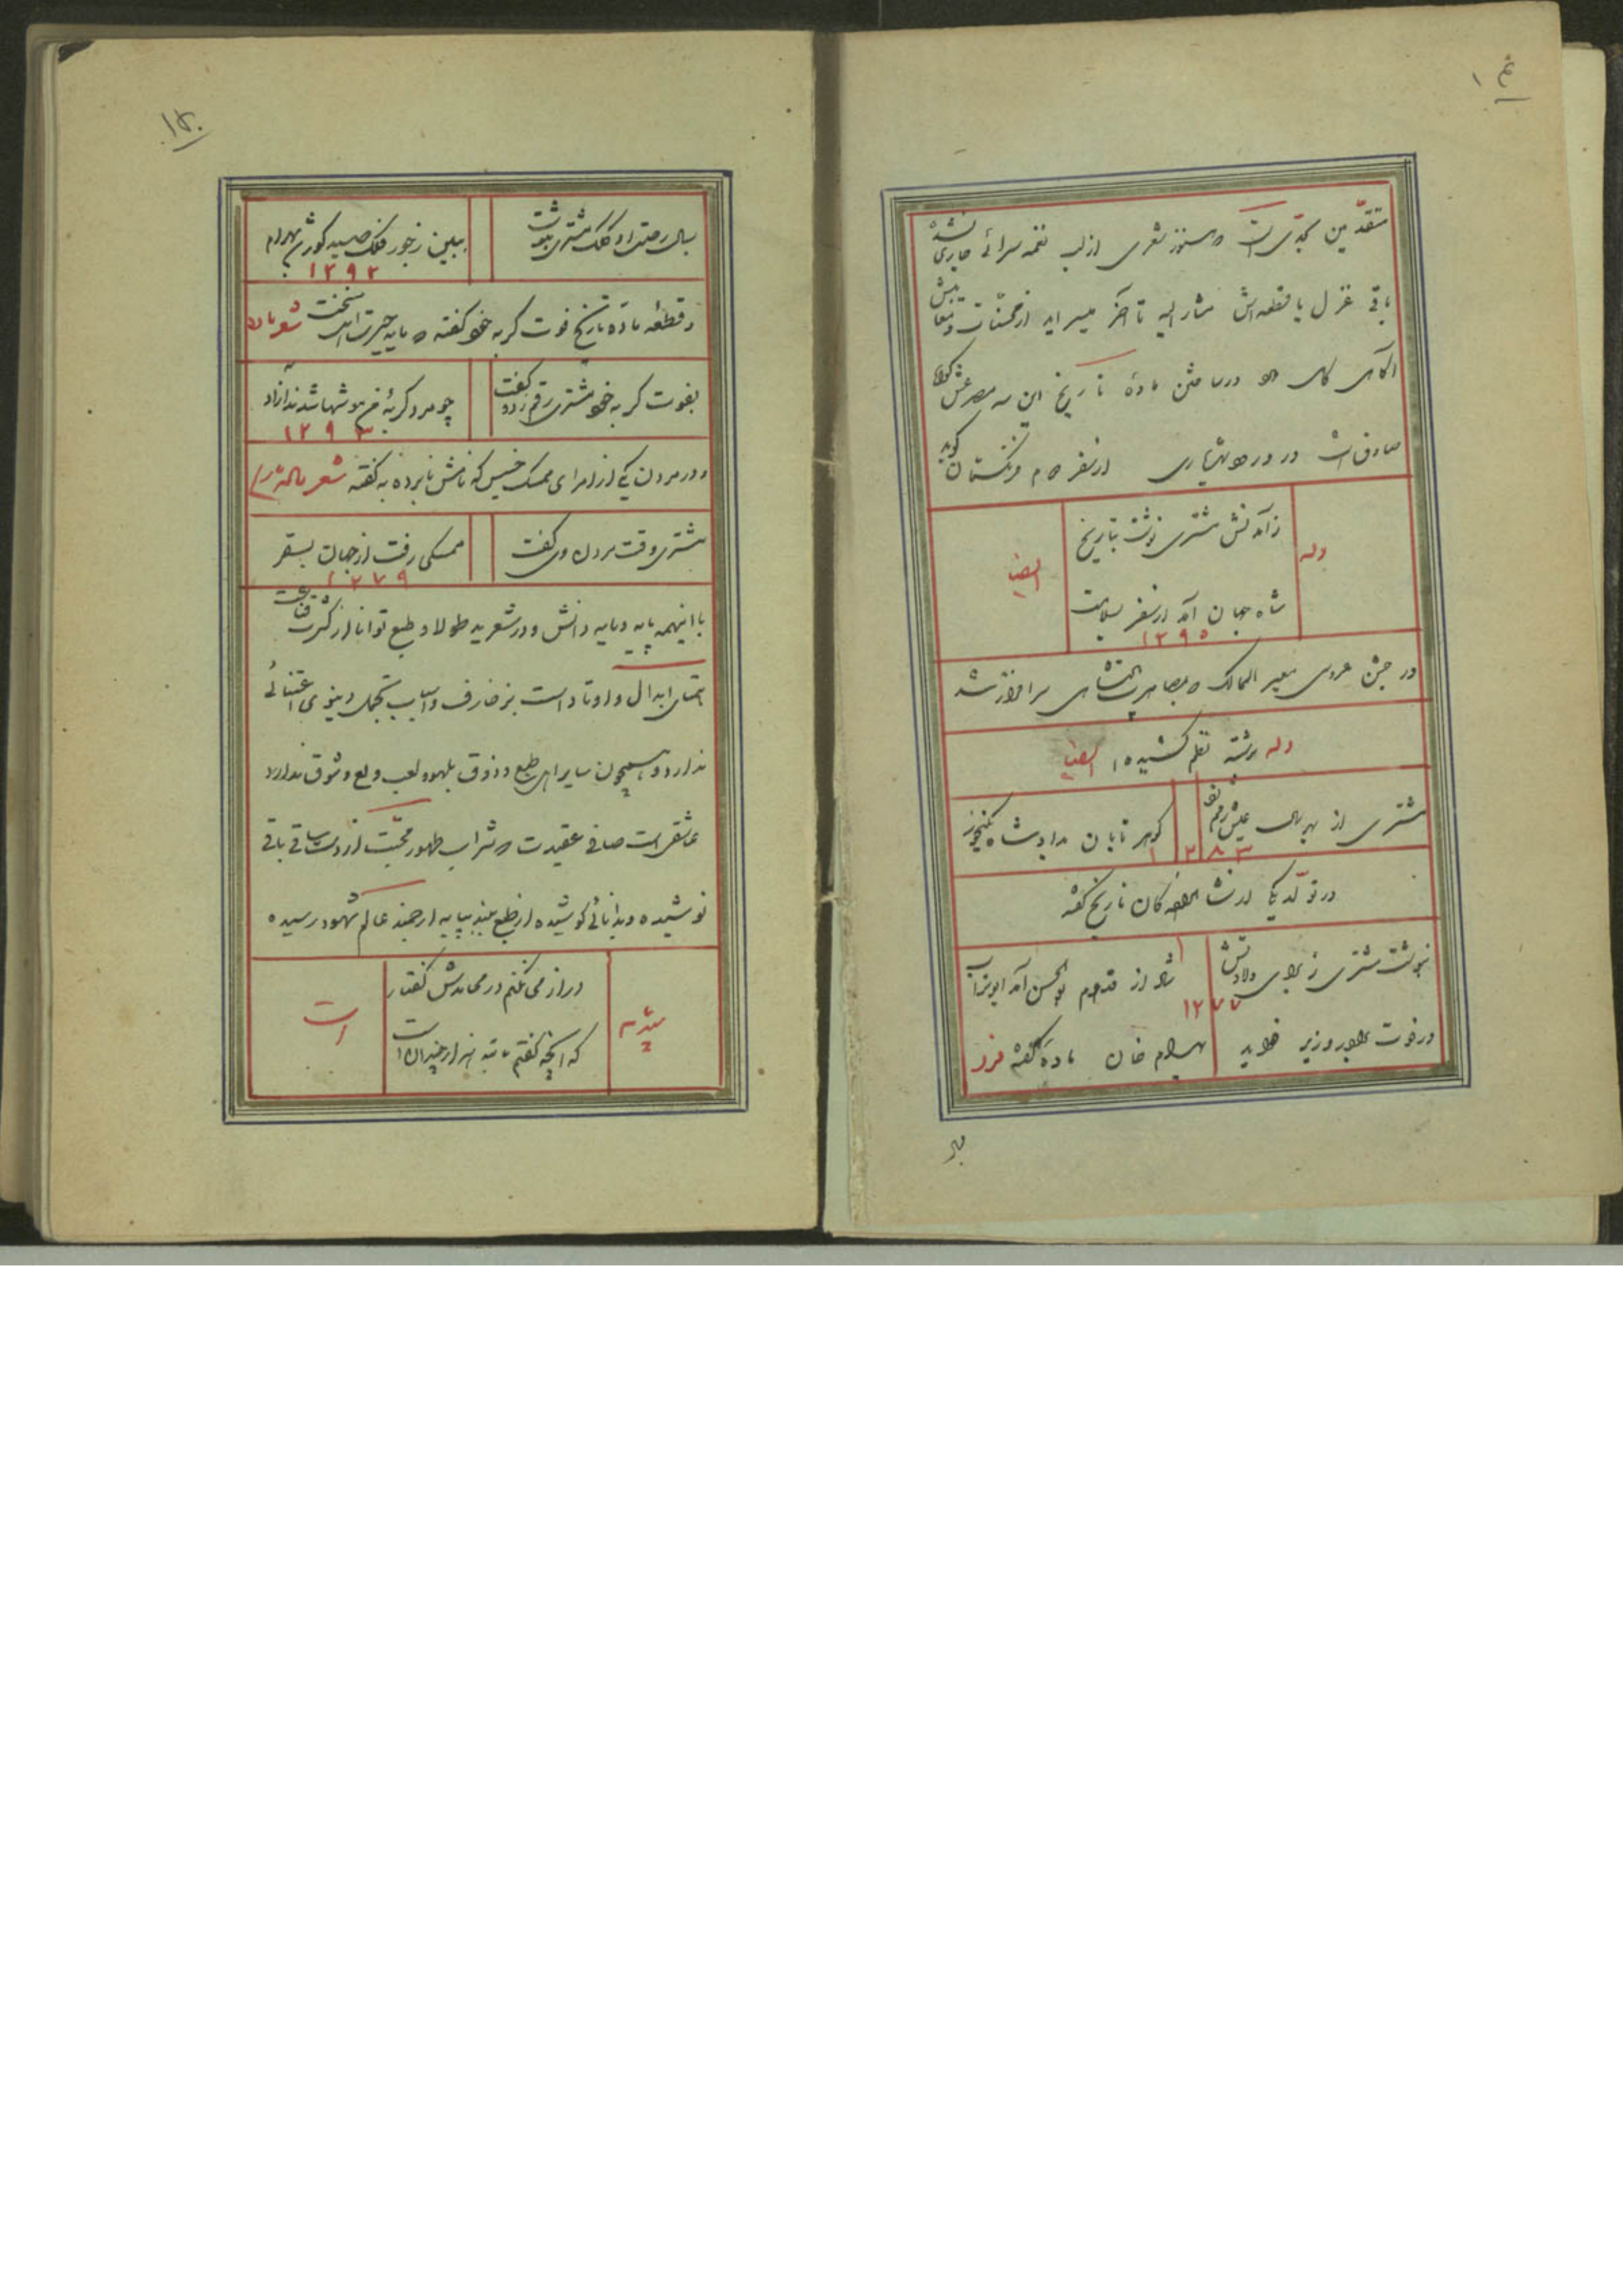 متقدّمین بحدّیست که هنوز شعری از لب نغمه سرائی جاری نشده
باقی غزل یا قطعه‌اش مشار الیه تا آخر میسراید از محسّنات و معایبش
آگاهی در ساختن مادهٔ تاریخ این سه مصرعش گواه
صادق است در ورود شهریاری از سفر دوم فرنگستان گوید
وله
زآمدنش مشتری نوشت بتاریخ
ایضا
شاه جهان آمد از سفر بسلامت
١٢٩٥
در جشن عروسی معیر الممالک که بمصاهرت سرافراز شد
وله برشتهٔ نظم کشیده ایضا
مشتری از بهر سال عیش رقم
گوهر تابان بداد شاه
١٢٨٣
در تولد یکی از تاریخ گفته
بنوشت مشتری ز برای ولادتش
شاد از قدوم بوالحسن آمد ابوتراب
١٢٧٧
در فوت وزیر بهرام خان ماده گفته فرد
بسال رحلت او کلک مشتری بنوشت
ببین ز جور فلک صید گور شد بهرام
١٢٩٢
و قطعهٔ ماده تاریخ فوت گربه خود گفته که مایه حیرت است
بفوت گربه خود مشتری رقم زد و گفت
چو مرد گربهٔ من موشها شدند آزاد
١٢٩٣
و در مردن یکی از امرای ممسک خسیس که نامش نابرده به گفته شعر
مشتری وقت مردن وی گفت
ممسکی رفت از جهان بسقر
١٢٧٩
با اینهمه پایه و مایه دانش و در شعر ید طولا و طبع توانا از کثرت قناعت
همتای ابدال و اوتاد است بزخارف و اسباب تجمل دنیوی اعتنائی
ندارد و همچون سایر اهل طبع و ذوق بلهو و لعب ولع و شوق ندارد
عاشقی است صافی عقیدت که شراب طهور محبّت از دست ساقی باقی
نوشیده و بدانائی کوشیده از طبع بلند بپایه ارجمند عالم شهود رسیده
دراز می نکنم در محامدش گفتار
که آنچه گفتم نه هزار چندان است
است